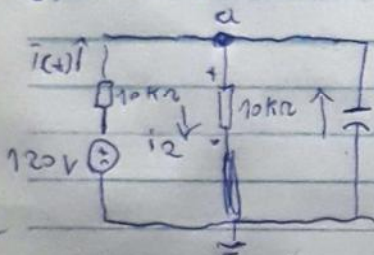 a
i(t)
10KΩ
+
10KΩ
i2
120V